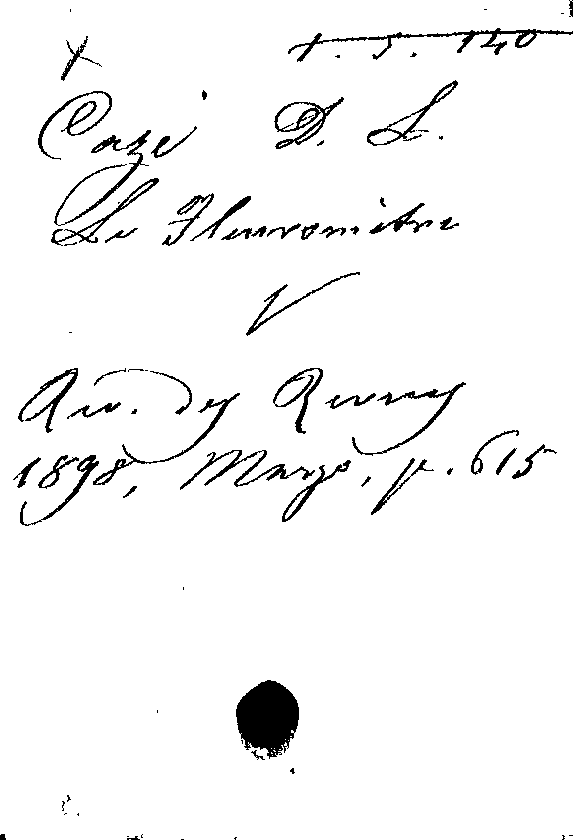 X 1. 5. 140
Cazé D. L.
Le Fleuromètre
V
Rev. des Revues
1898, Marzo, p. 615